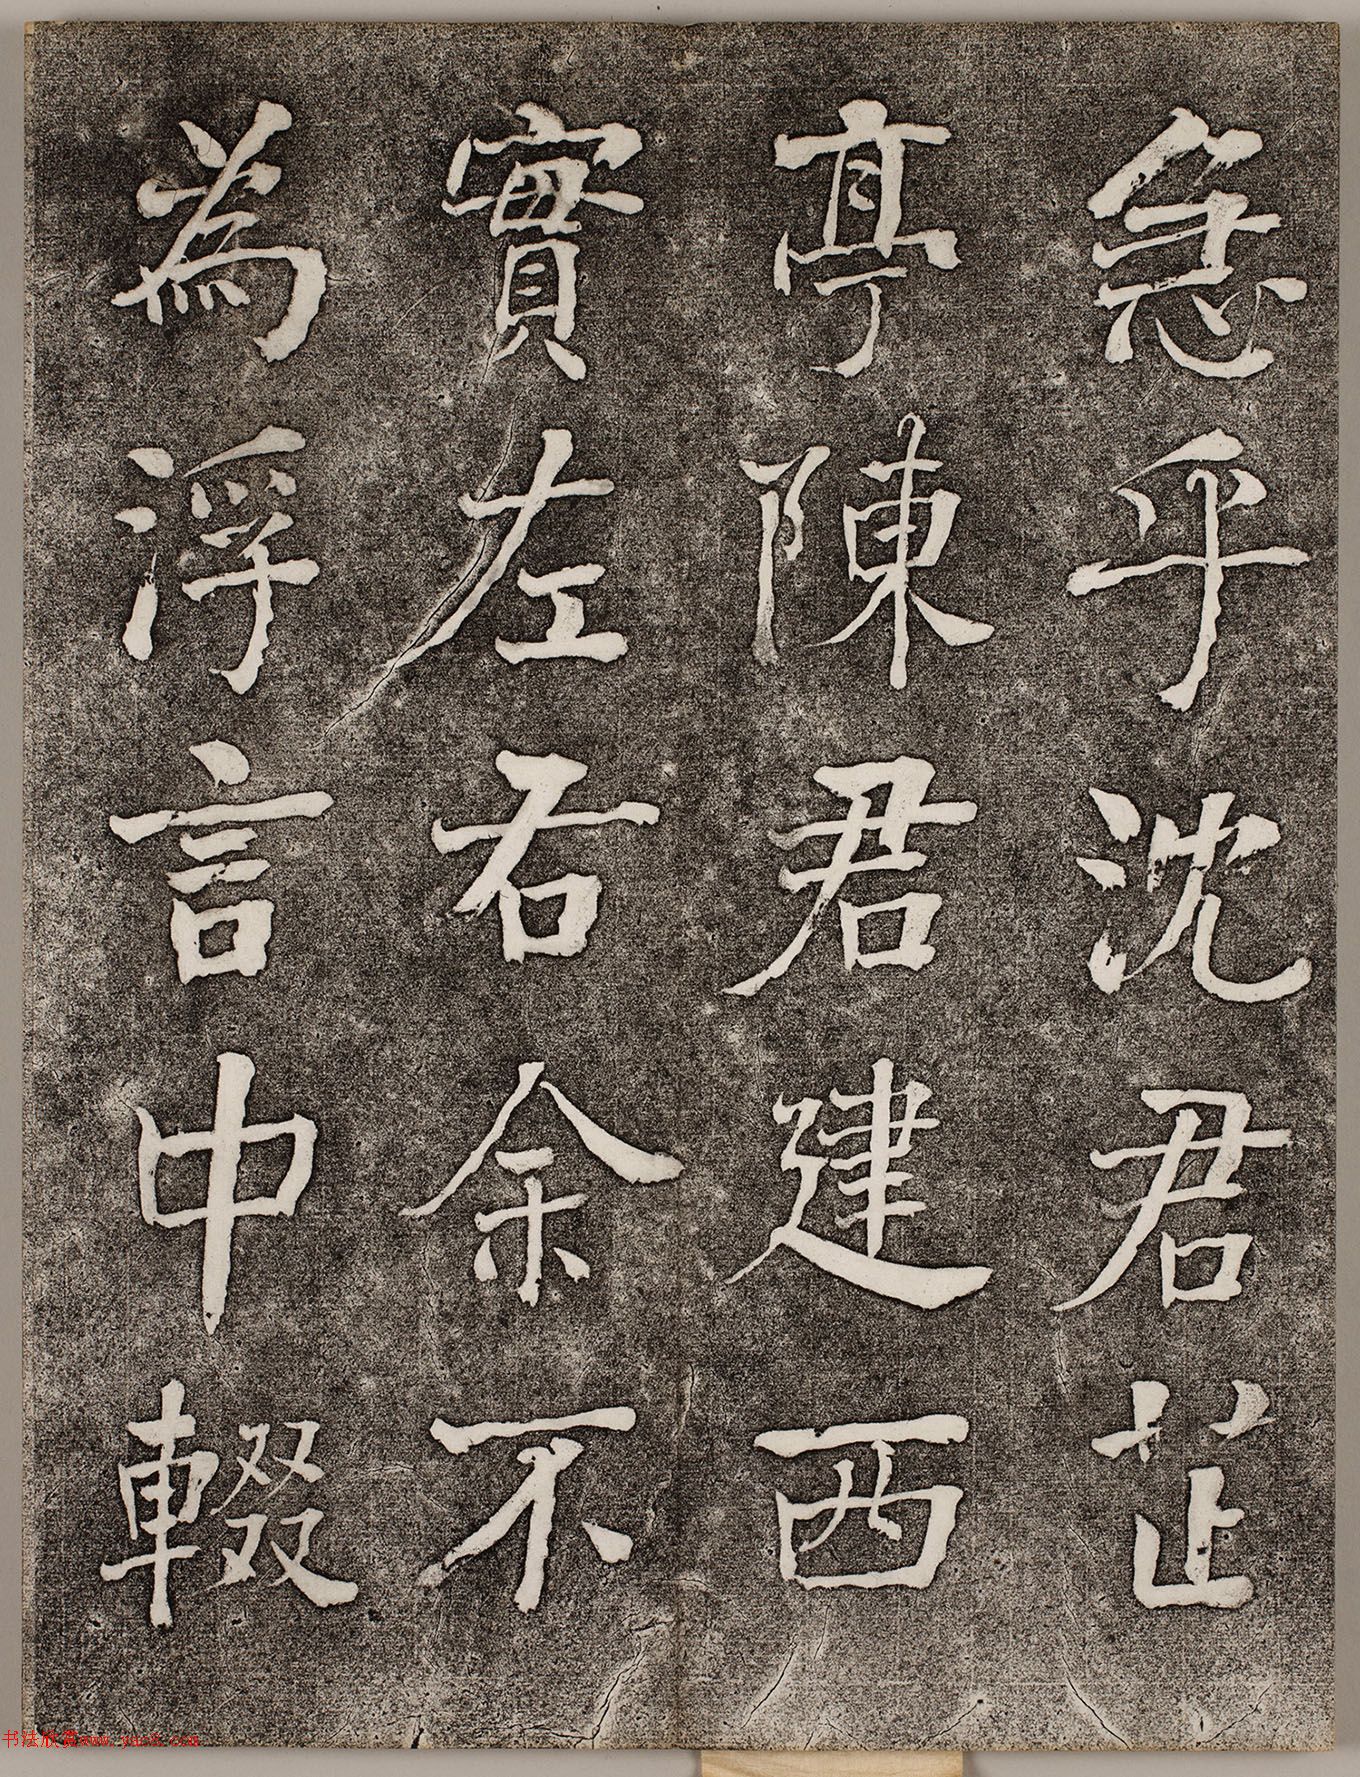 急乎沈君芷
亭陳君建西
實左右余不
為浮言中輟
书法欣赏www.yac8.com